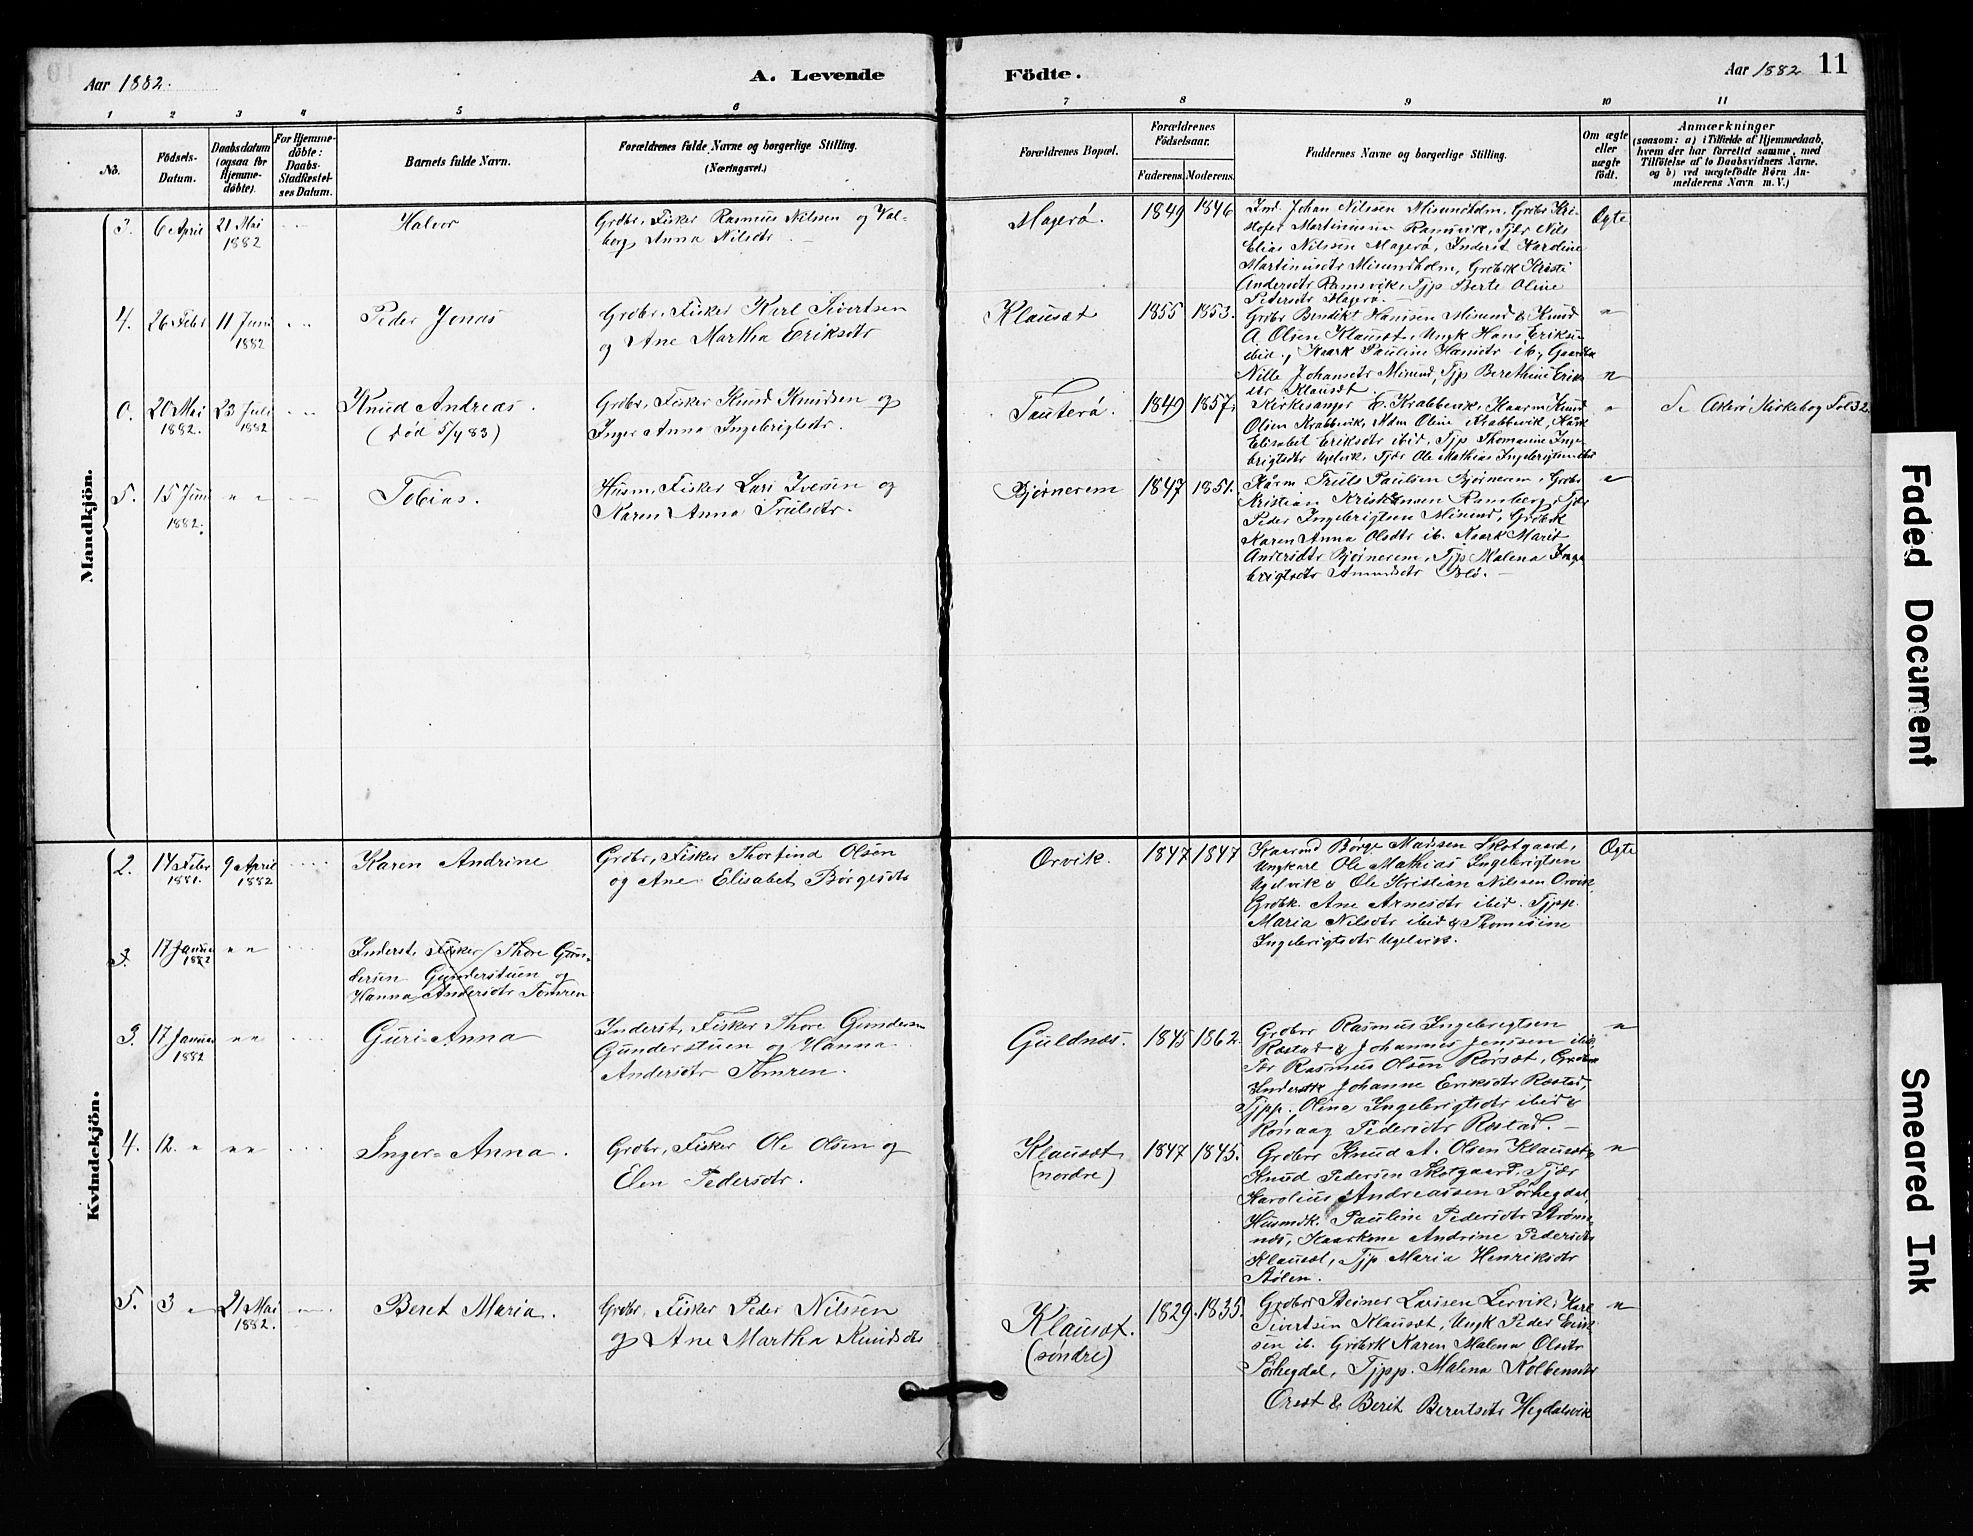 Aar 1882.
A. Levende
Födte.
Aar 1882
11
1 2 3 4 5 6 7 8 9 10 11
No.
Födsels-
Datum.
Daabsdatum
(ogsaa for
Hjemme-
döbte).
For Hjemme-
döbte:
Daabs-
Stadfæstel-
ses Datum.
Barnets fulde Navn.
Forældrenes fulde Navne og borgerlige Stilling.
(Næringsvei.)
Forældrenes Bopæl.
Forældrenes
Födselsaar.
Faderens. Moderens.
Faddernes Navne og borgerlige Stilling.
Om ægte
eller
uægte
födt.
Anmærkninger
(saasom: a) i Tilfælde af Hjemmedaab,
hvem der har forrettet samme, med
Tilföielse af to Daabsvidners Navne,
og b) ved uægtefödte Börn An-
melderens Navn m. V.)
Mandkjön.
3. 6 April 21 Mai
1882
Halvor
Grdbr, Fisker Rasmus Nilsen og Val-
borg Anna Nilsdtr.
Magerö.
1849 1846
Ind. Johan Nilssen Misundholm, Grdbr Kri-
stofer Martinussen Ramsvik, Tjdr Nils
Elias Nilssen Magerø, Inderst Karoline
Martinusdtr Misundholm, Grdbrk Kristi
Andersdtr Ramsvik, Tjp Berte Oline
Pedersdtr Magerø.
Ægte
4. 26 Febr 11 Juni
1882
Peder Jonas
Grdbr, Fisker Karl Sivertsen
og Ane Martha Eriksdtr
Klausæt
1855 1853.
Grdbr Bendikt Hansen Misund & Knud
A. Olsen Klausæt, Ungk Hans Eriksen
ibid., Kaark Pauline Hansdtr ib., Gaardbk
Nille Johansdtr Misund, Tjp Berethine Erik-
dtr Klausæt
"
"
0. 20 Mai 23 Juli
1882. 1882
Knud Andreas.
(død 5/4 83)
Grdbr, Fisker Knud Knudsen og
Inger Anna Ingebrigtsdtr.
Tauterö.
1849 1857.
Kirkesanger E. Krabbevik, Kaarm Knud
Olsen Krabbevik, Mdm Oline Krabbevik, Kark
Elisabet Eriksdtr ibid, Tjp Thomasine Inge-
brigtsdtr Ugelvik, Tjdr Ole Mathias Ingebrigtsen ibid
"
Se Akerø Kirkebog Fol 32
5. 15 Juni " "
1882.
Tobias.
Husm, Fisker Lars Iversen og
Karen Anna Trulsdtr.
Bjørnerem
1847 1851.
Kårm Truls Paulsen Bjørnerem, Grdbr
Kristian Kristensen Ramberg, Tjdr
Peder Ingebrigtsen Misund, Grdbrk
Karen Anna Olsdtr ib. Kaark Marit
Andersdtr Bjørnerem, Tjp Malena Inge-
brigtsdtr Amundsdtr
"
Kvindekjön.
2. 14 Febr 9 April
1881. 1882
Karen Andrine
Grdbr, Fisker Thorfind Olsen
og Ane Elisabet Børgesdtr
Orvik.
1847 1847
Kaarmd Børge Madsen Skotgaard,
Ungkarl Ole Mathias Ingebrigtsen
Ugelvik & Ole Kristian Nilsen Orvik,
Grdbk. Ane Arnesdtr ibid. Tjpp.
Maria Nilsdtr ibid & Thomesine
Ingebrigtsdtr Ugelvik.
Ægte
3. 17 Januar " "
1882
Inderst, Fisker Thore Gun-
dersen Gunderstuen og
Hanna Andersdtr Tomren
3. 17 Januar " "
1882
Guri-Anna
Inderst, Fisker Thore Gundersen
Gunderstuen og Hanna
Andersdtr Tomren.
Guldnæs.
1845 1862.
Grdbrr Rasmus Ingebrigtsen
Røstad & Johannes Jenssen ibid,
Rasmus Olsen Rørsæt,
Inderstk Johanne Eriksdtr Røstad,
Tjpp. Olina Ingebrigtsdtr ibid &
Rønnaag Pedersdtr Røstad.
"
4. 12. " " "
Inger-Anna.
Grdbr, Fisker Ole Olsen og
Elen Pedersdtr.
Klausæt
(nordre)
1847 1845.
Grdbrr Knud A. Olsen Klausæt,
Knud Pedersen Skotgaard, Tjdr
Karolius Andreassen Sørhegdal,
Husmdk. Pauline Pedersdtr Strøm-
næs, Kaarkone Andrine Pedersdtr
Klausæt, Tjp Maria Henriksdtr
Stølen.
"
5. 3 " 21 Mai
1882.
Beret Maria.
Grdbr. Fisker Peder Nilssen
og Ane Martha Knudsdtr
Klausæt.
(søndre)
1829. 1835.
Grdbrr Steiner Larssen Lervik, Karl
Sivertsen Klausæt, Ungk Peder Erik-
sen ib. Grdbrk Karen Malena Olsdtr
Sørhegdal, Tjpp. Malena Kolbensdtr
Orsæt & Berit Berntsdtr Hegdalsvik
"
Faded Document
Smeared Ink